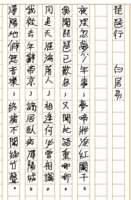 琵琶行　白居易
夜深忽夢少年事，夢啼妝淚紅闌干。
我聞琵琶已歎息，又聞此語重唧唧。
同是天涯淪落人，相逢何必曾相識。
我從去年辭帝京，謫居臥病潯陽城。
潯陽地僻無音樂，終歲不聞絲竹聲。